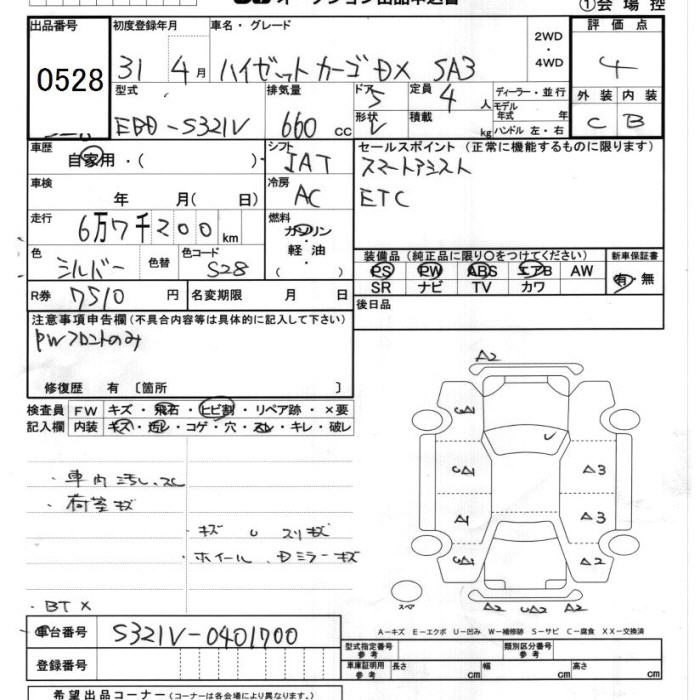 オークション出品申込書
①会場控
出品番号
0528
初度登録年月
31 4月
車名・グレード
ハイゼットカーゴ DX SA3
2WD
・
4WD
評価点
4
型式
EBD-S321V
排気量
660 cc
ドア 5
形状 V
定員 4 人
積載 kg
ディーラー・並行
モデル年式 年
ハンドル 左・右
外装 内装
C B
車歴
自家用・( )
シフト
IAT
セールスポイント (正常に機能するものに限ります)
スマートアシスト
ETC
車検
年 月( 日)
冷房
AC
走行
6万7千200 km
燃料
ガソリン
軽油
( )
色
シルバー
色替
色コード
S28
装備品 (純正品に限り〇をつけてください)
PS PW ABS エアB AW
SR ナビ TV カワ
新車保証書
有・無
R券
7510 円
名変期限 月 日
後日品
注意事項申告欄(不具合内容等は具体的に記入して下さい)
PWフロントのみ
修復歴 有 〔箇所 〕
検査員
記入欄
FW キズ・飛石・ヒビ割・リペア跡・×要
内装 キズ・汚レ・コゲ・穴・スレ・キレ・破レ
・車内汚レ、スレ
・荷室キズ
・キズ U スリキズ
・ホイール、Dミラーキズ
・BT×
A2
A3
A3
A2
A1
A2 UA2 A2
スペア
A－キズ E－エクボ U－凹み W－補修跡 S－サビ C－腐食 XX－交換済
車台番号
S321V-0401700
登録番号
型式指定番号
参考
類別区分番号
参考
車庫証明用
参考
長さ cm 幅 cm 高さ cm
希望出品コーナー(コーナーは各会場により異なります。)